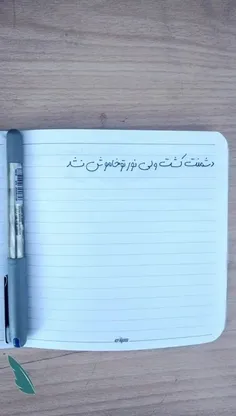 دشمنت کشت ولی نور تو خاموش نشد